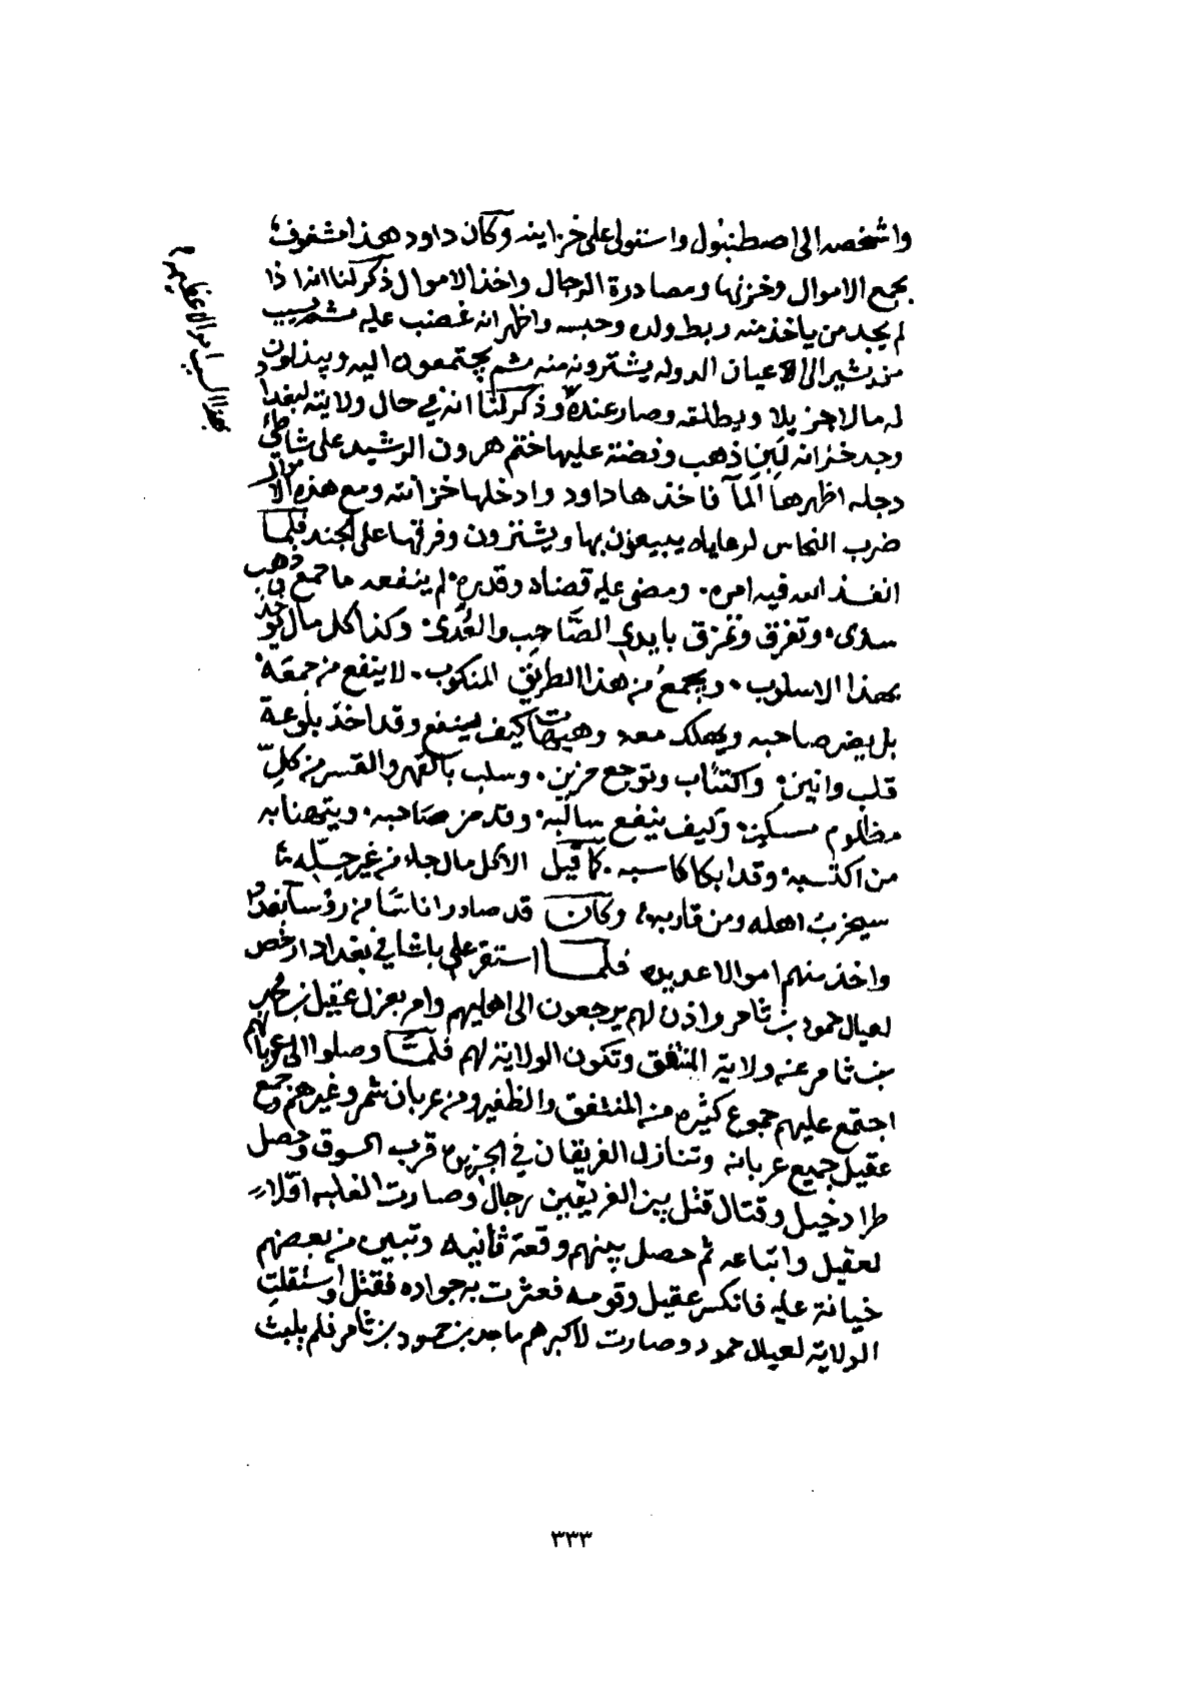 واشخصه الى اصطنبول واستولى على خزاينه وكان داود هذا مشغوف
بجمع الاموال وخزنها ومصادرة الرجال واخذ الاموال ذكر لنا انه اذا
لم يجد من ياخذ منه ربط ولده وحبسه واظهر انه غضب عليه ثم
يشير الى الاعيان الدوله يشترونه منه ثم يجتمعون اليه ويبذلون
له مالا جزيلا ويطلقه وصار عنده وذكر لنا انه في حال ولايته لبغداد
وجد خزانه لبن ذهب وفضة عليها ختم هرون الرشيد على شاطئ
دجله اظهرها الما فاخذها داود وادخلها خزانته ومع هذه الاموال
ضرب النحاس لرعاياه يبيعون بها ويشترون وفرقها على الجند فلما
انفذ الله فيه امره ومضى عليه قضاه وقدره لم ينفعه ما جمع ذهب
سدى وتفرق وتمزق بايدي الصاحب والعدى وكذا كل مال يوخذ
بهذا الاسلوب ويجمع من هذا الطريق المنكوب لا ينفع من جمعه
بل يضر صاحبه ويهلك معه وهيهات كيف ينفع وقد اخذ بلوعة
قلب وانين واكتئاب وتوجع حزين وسلب بالقهر والقسر من كل
مظلوم مسكين وكيف ينفع سالبه وقد صاحبه ويتهنا به
من اكتسبه وقد ابكا كاسبه كما قيل الا كل مال جاء من غير حله
سيخرب اهله ومن قاربه وكان قد صادر اناسا من رؤسا بغداد
واخذ منهم اموالا عديده فلما استقر علي باشا في بغداد ارخص
لعيال حمود بن ثامر واذن لهم يرجعون الى اهليهم وامر بعزل عقيل بن محمد
بن ثامر عن ولاية المنتفق وتكون الولاية لهم فلما وصلوا الى عربانهم
اجتمع عليهم جموع كثيره من المنتفق والظفير ومن عربان شمر وغيرهم وجمع
عقيل جميع عربانه وتنازل الفريقان في الجزيرة قرب السوق وحصل
طراد خيل وقتال قتل بين الفريقين رجال وصارت الغلبه اولا
لعقيل واتباعه ثم حصل بينهم وقعة ثانيه وتبين من بعضهم
خيانة عليه فانكسر عقيل وقومه فعثرت به جواده فقتل واستقلت
الولاية لعيال حمود وصارت لاكبرهم ماجد بن حمود بن ثامر فلم يلبث
٣٣٣